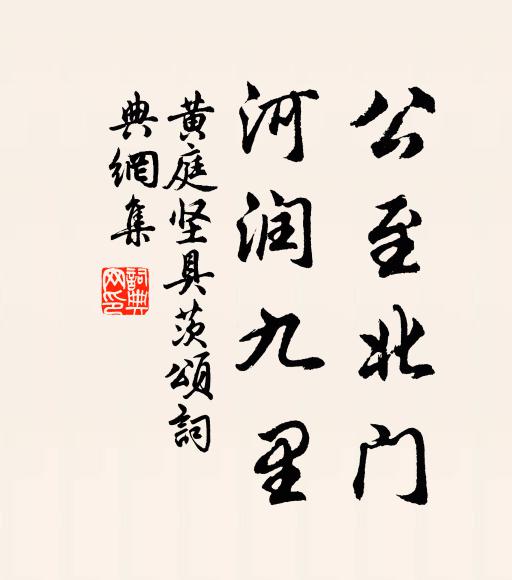 公至北门
河润九里
黄庭坚具茨颂詞
典網集
詞典
网印